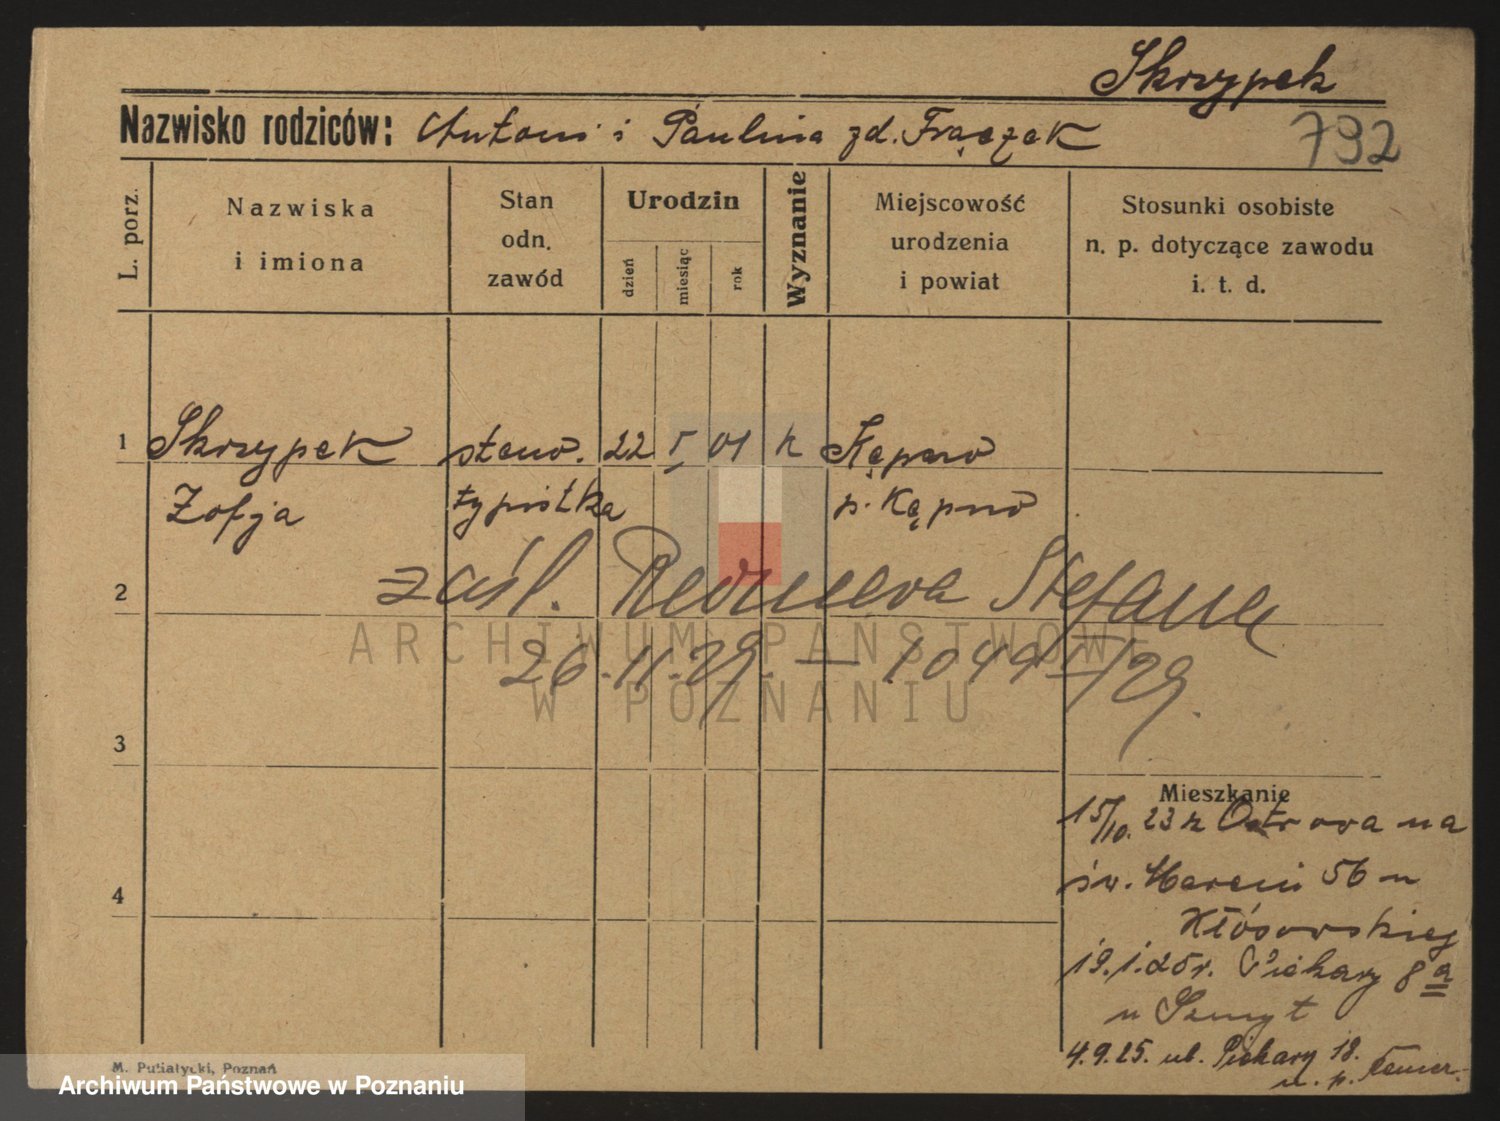 Skrzypek
Nazwisko rodziców: Antoni i Paulina zd. Frączek
792
L. porz.
Nazwiska
i imiona
Stan
odn.
zawód
Urodzin
dzień
miesiąc
rok
Wyznanie
Miejscowość
urodzenia
i powiat
Stosunki osobiste
n. p. dotyczące zawodu
i. t. d.
1 Skrzypek stano. 22 V 01 k Kępno
Zofja typistka p. Kępno
2 zaśl. Stefana
26.11.29. — 1049/29.
3
Mieszkanie
15/10. 23 z Ostrowa na
św. Marcin 56 u
4
Kłósowskiej
19.1.25r. Piekary 8a
u Szmyt
4.9.25. ul. Piekary 18.
u. p.
M. Putiatycki, Poznań
ARCHIWUM PAŃSTWOWE
W POZNANIU
Archiwum Państwowe w Poznaniu